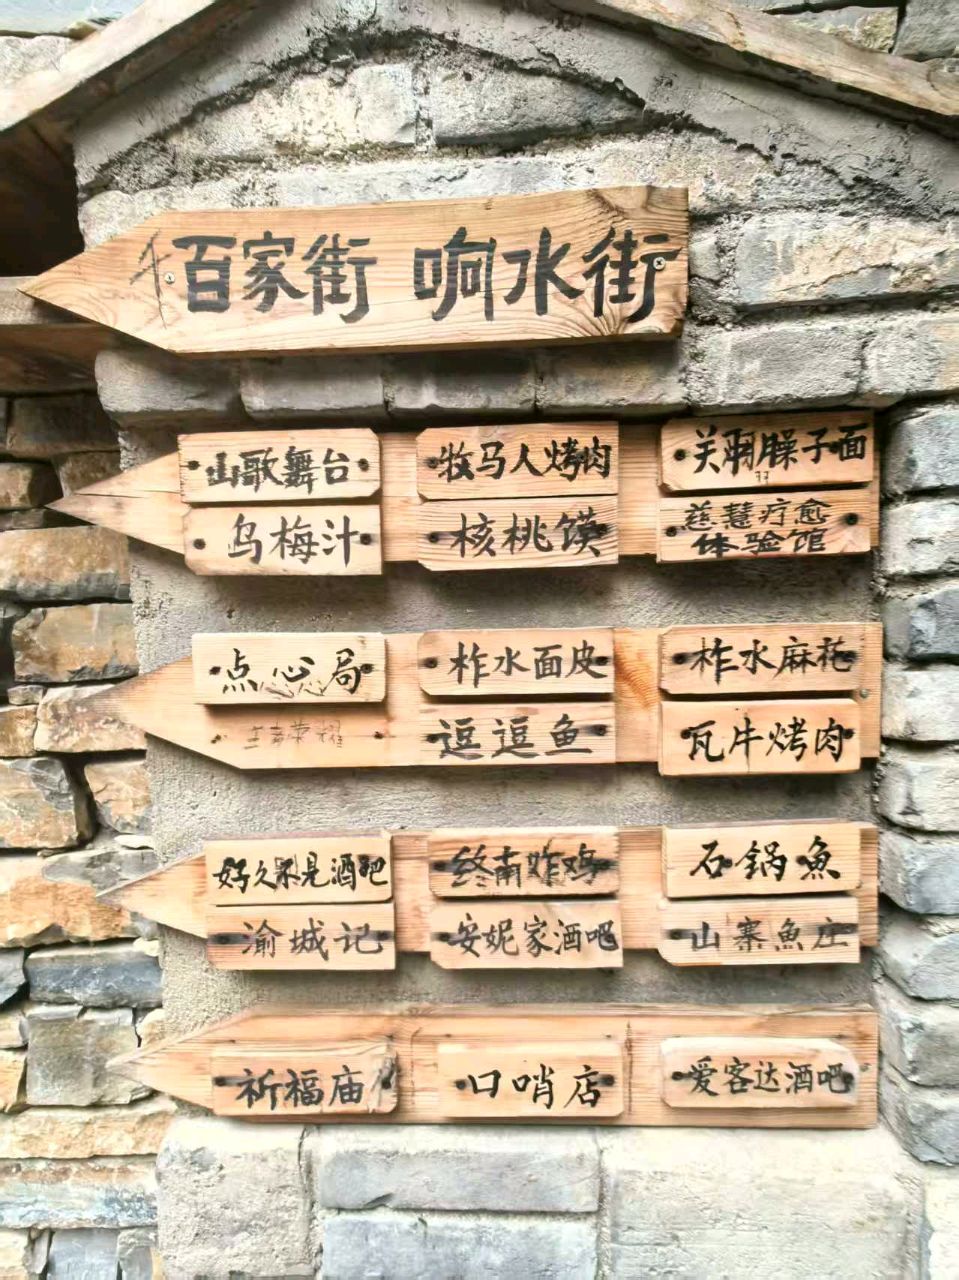 百家街 响水街
山歌舞台 牧马人烤肉 关雕臊子面
乌梅汁 核桃馍 慈慧疗愈
体验馆
点心局 柞水面皮 柞水麻花
逗逗鱼 瓦片烤肉
好久不见酒吧 终南炸鸡 石锅魚
渝城记 安妮家酒吧 山寨魚庄
祈福庙 口哨店 爱客达酒吧